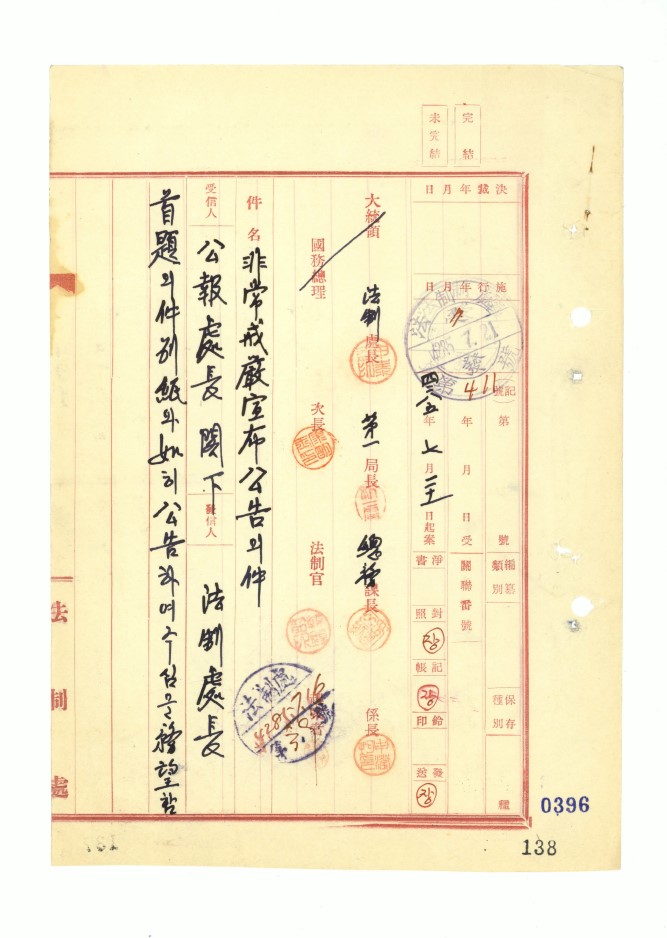 完結
未完結
決裁年月日
施行年月日
法制處
7.21
發
記號
第 411 號
編纂類別
保存種別
種
年 月 日 受
關聯番號
四二八五年七月二十一日起案
淨書
封照
장
記帳
장
鈴印
發送
장
大統領
法制處長
第一局長
總務課長
係長
國務總理
次長
法制官
件名
非常戒嚴宣布公告의件
法制處
4285.7
受信人
公報處長 閣下
發信人
法制處長
首題의件別紙와如히公告하여주심을務望함
法制處
0396
138